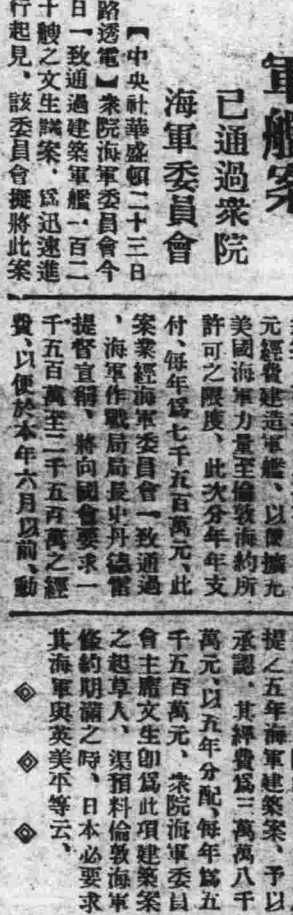 軍艦案
已通過衆院
海軍委員會
【中央社華盛頓二十三日
路透電】衆院海軍委員會今
日一致通過建築軍艦一百二
十艘之文生議案、爲迅速進
行起見、該委員會擬將此案
元經費建造軍艦、以便擴充
美國海軍力量至倫敦海約所
許可之限度、此次分年年支
付、每年爲七千五百萬元、此
案業經海軍委員會一致通過
、海軍作戰局局長史丹德雷
提督宣稱、將向國會要求一
千五百萬至二千五百萬之經
費、以便於本年六月以前、動
提之五年海軍建築案、予以
承認、其經費爲三萬萬八千
萬元、以五年分配、每年爲五
千五百萬元、衆院海軍委員
會主席文生卽爲此項建築案
之起草人、渠預料倫敦海軍
條約期滿之時、日本必要求
其海軍與英美平等云、